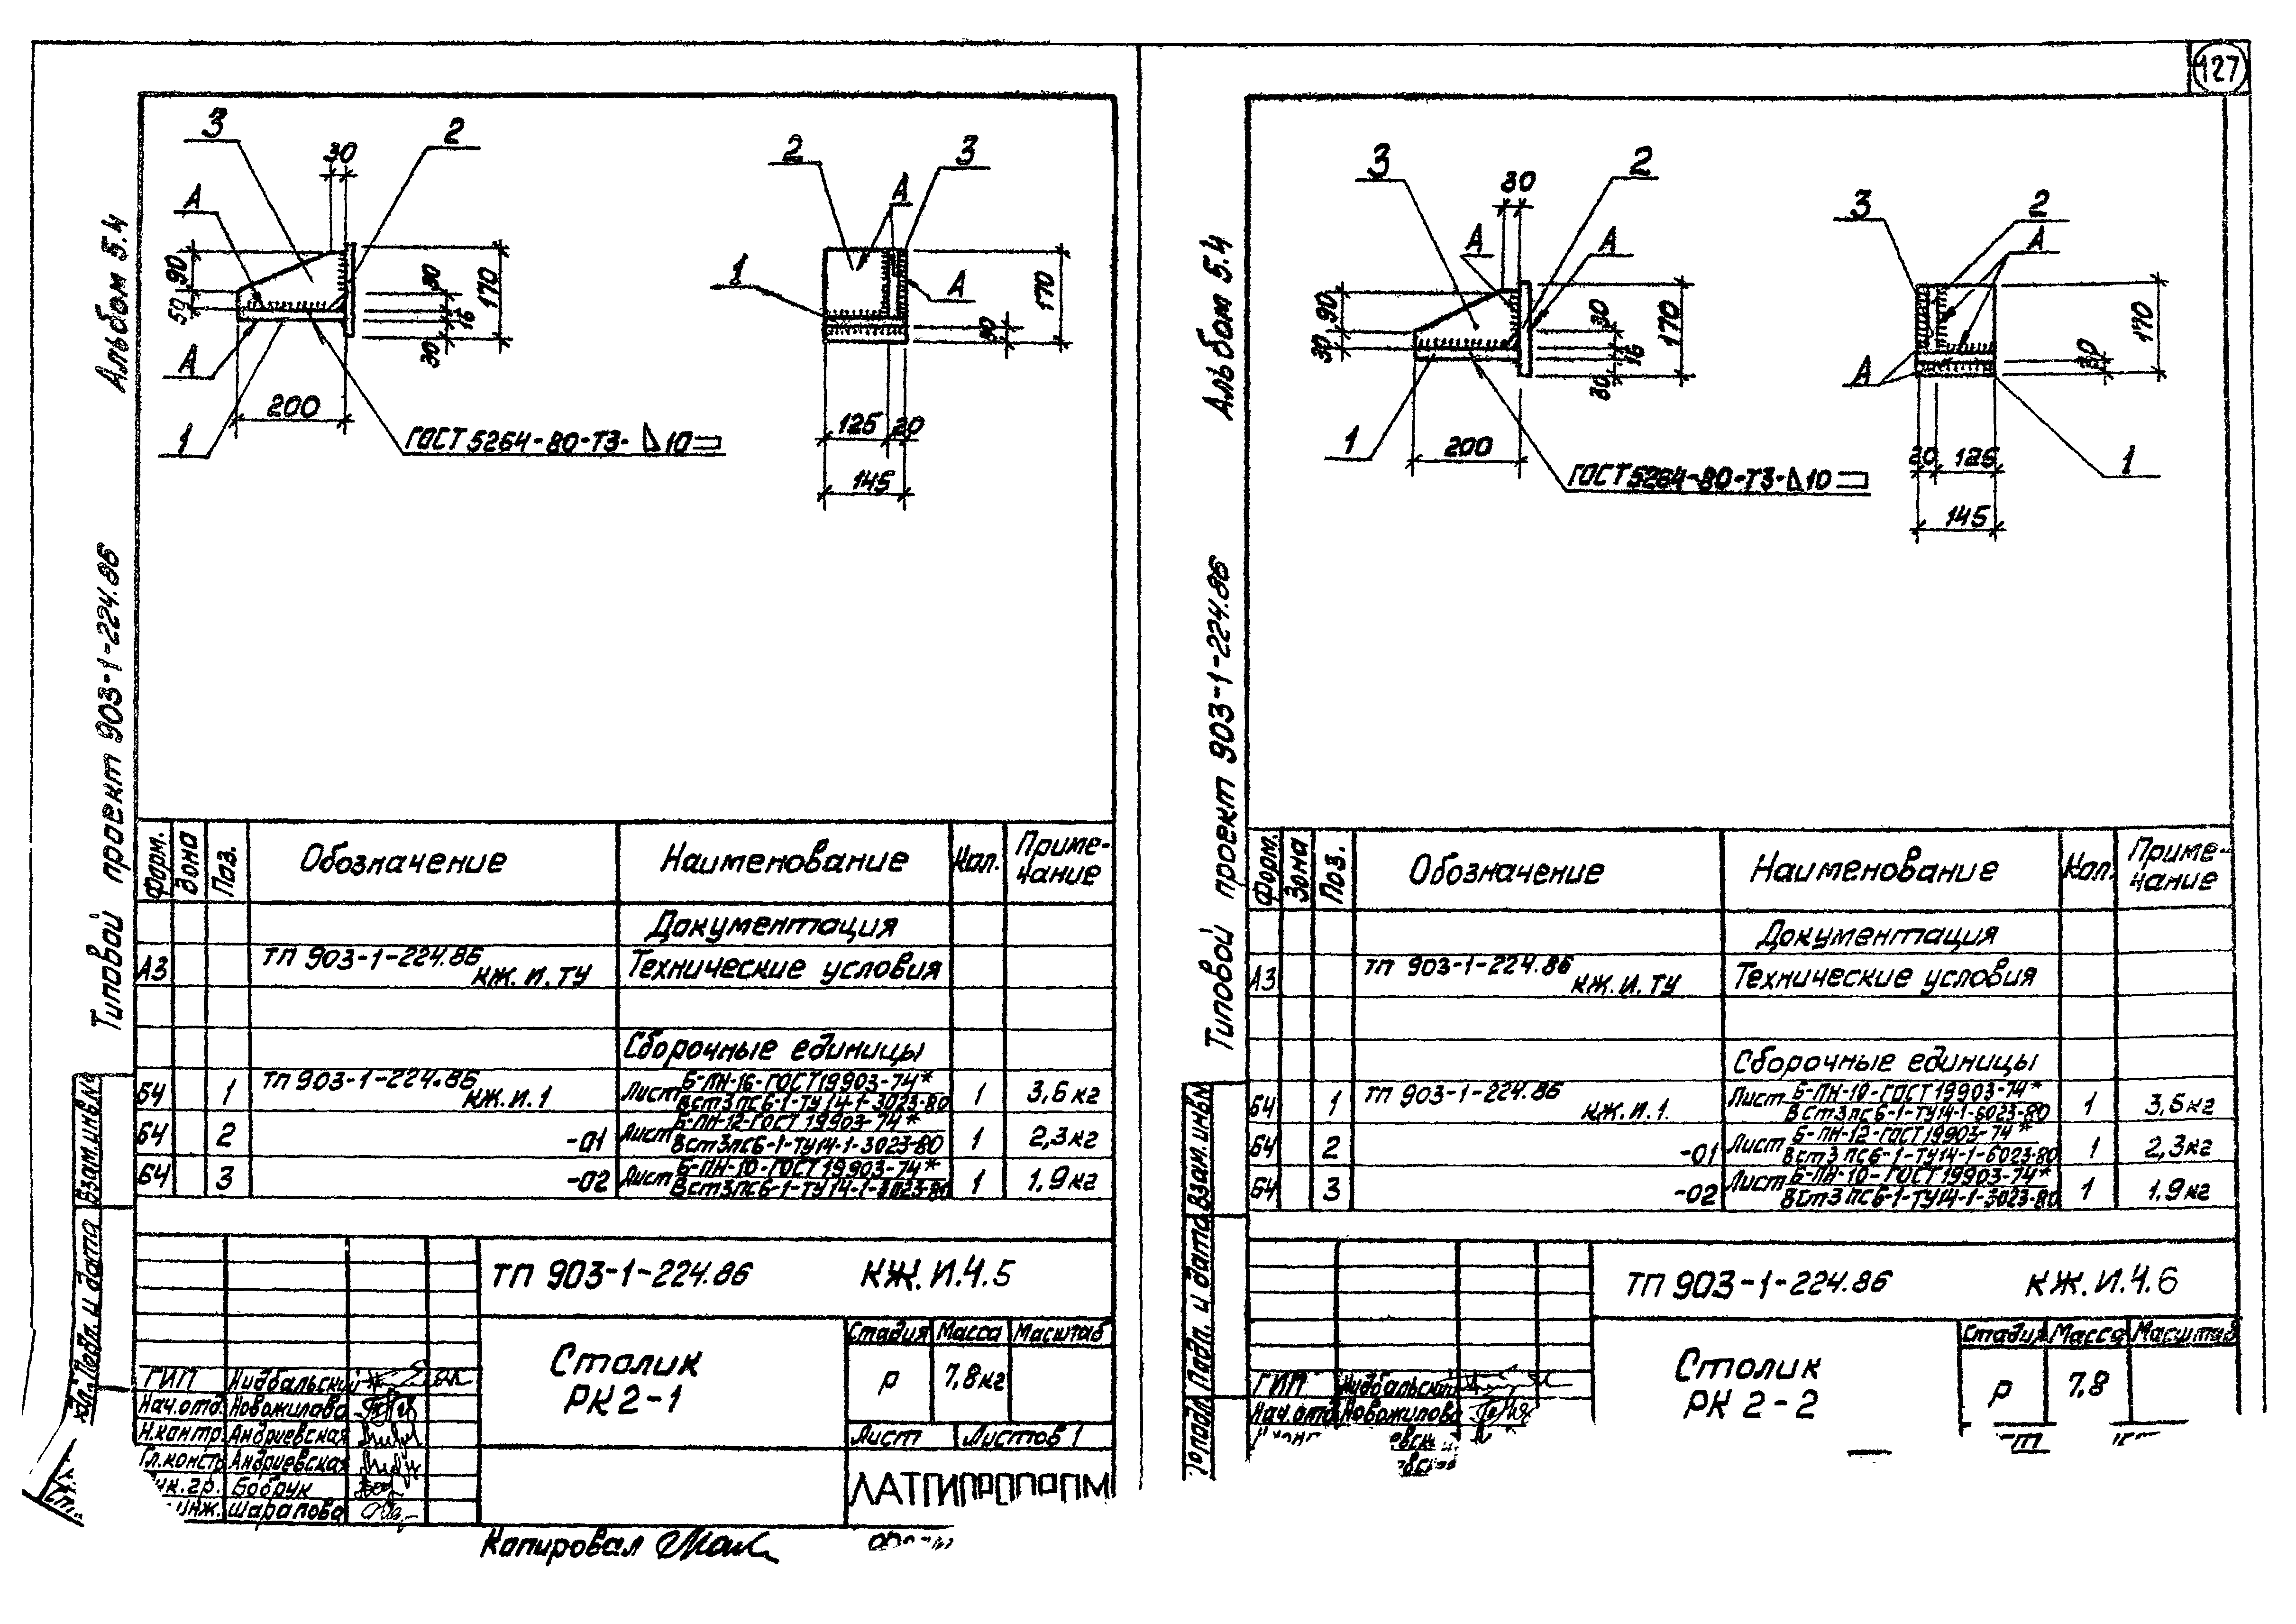 127
Альбом 5.4
Типовой проект 903-1-224.86
3
30
2
А
90
50
А
1
200
30
16
30
170
ГОСТ 5264-80-Т3-△10
2
3
А
1
А
170
30
125
20
145
Форм.
Зона
Поз.
Обозначение
Наименование
Кол.
Примечание
Документация
А3 ТП 903-1-224.86 КЖ.И.ТУ Технические условия
Сборочные единицы
Б4 1 ТП 903-1-224.86 КЖ.И.1 Лист Б-ПН-16-ГОСТ 19903-74* / ВСт3пс6-1-ТУ14-1-3023-80 1 3,6 кг
Б4 2 -01 Лист Б-ПН-12-ГОСТ 19903-74* / ВСт3пс6-1-ТУ14-1-3023-80 1 2,3 кг
Б4 3 -02 Лист Б-ПН-10-ГОСТ 19903-74* / ВСт3пс6-1-ТУ14-1-3023-80 1 1,9 кг
Взам.инв.№
Подл. и дата
ТП 903-1-224.86 КЖ.И.4.5
Столик
РК2-1
Стадия Масса Масштаб
Р 7,8 кг
Лист Листов 1
ГИП Нидбальский
Нач.отд. Новожилова
Н.контр. Андриевская
Гл.констр. Андриевская
Бобрик
инж. Шарапова
ЛАТГИПРОПРОМ
Копировал
Альбом 5.4
Типовой проект 903-1-224.86
3
30
2
А
А
90
30
1
200
30
16
30
170
ГОСТ 5264-80-Т3-△10
3
2
А
А
170
30
20
125
145
1
Форм.
Зона
Поз.
Обозначение
Наименование
Кол.
Примечание
Документация
А3 ТП 903-1-224.86 КЖ.И.ТУ Технические условия
Сборочные единицы
Б4 1 ТП 903-1-224.86 КЖ.И.1. Лист Б-ПН-10-ГОСТ 19903-74* / ВСт3пс6-1-ТУ14-1-6023-80 1 3,6 кг
Б4 2 -01 Лист Б-ПН-12-ГОСТ 19903-74* / ВСт3пс6-1-ТУ14-1-6023-80 1 2,3 кг
Б4 3 -02 Лист Б-ПН-10-ГОСТ 19903-74* / ВСт3пс6-1-ТУ14-1-3023-80 1 1,9 кг
Взам.инв.№
Подл. и дата
ТП 903-1-224.86 КЖ.И.4.6
Столик
РК 2-2
Стадия Масса Масштаб
Р 7,8
ГИП Нидбальский
Нач.отд. Новожилова